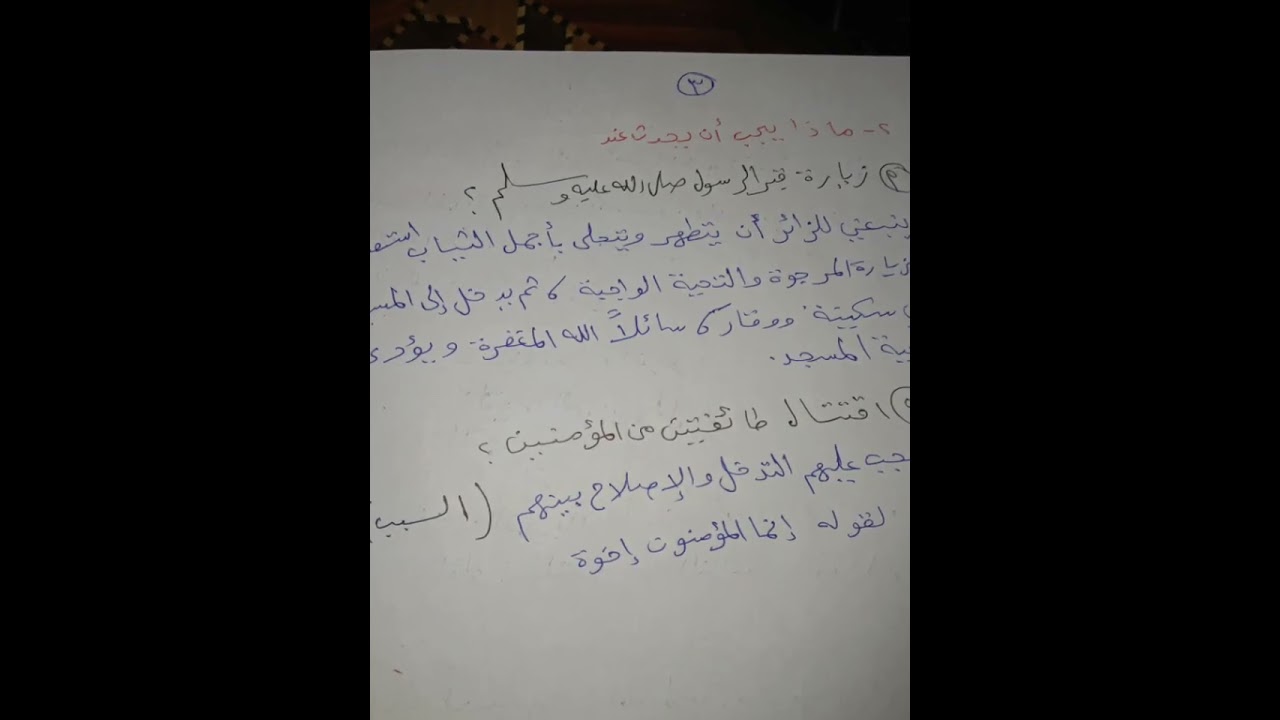 ٣
٢- ماذا يجب أن يحدث عند
زيارة قبر الرسول صلى الله عليه وسلم ؟
ينبغي للزائر أن يتطهر ويتحلى بأجمل الثياب
المرجوة والتحية الواجبة ، ثم يدخل إلى
سكينة ووقار ، سائلاً الله المغفرة ويؤدي
المسجد.
اقتتال طائفتين من المؤمنين ؟
عليهم التدخل والإصلاح بينهم (السبب)
لقوله إنما المؤمنون إخوة